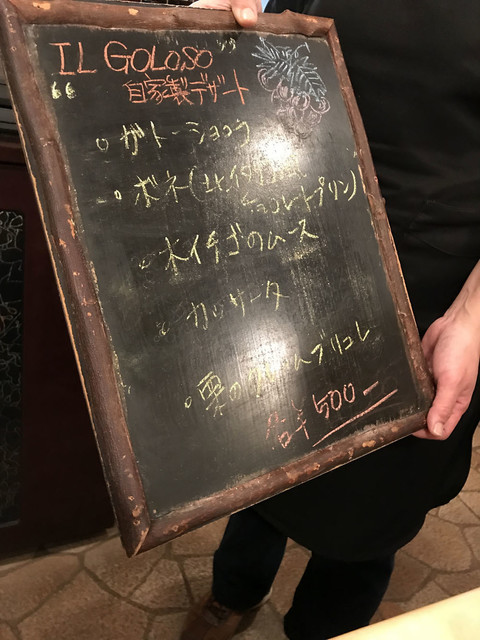 IL GOLOSO
“自家製デザート”
・ガトーショコラ
・ボネ(北イタリア風
チョコレートプリン)
・木イチゴのムース
・カッサータ
・栗のクレームブリュレ
各¥500ー